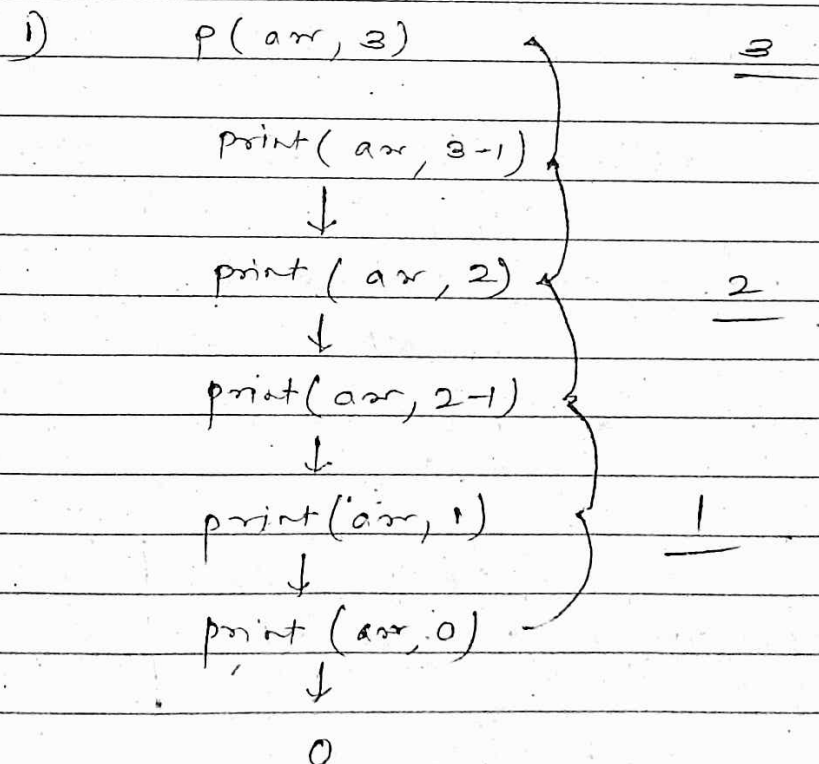 1) p(arr, 3) 3
print(arr, 3-1)
↓
print(arr, 2) 2
↓
print(arr, 2-1)
↓
print(arr, 1) 1
↓
print(arr, 0)
↓
0